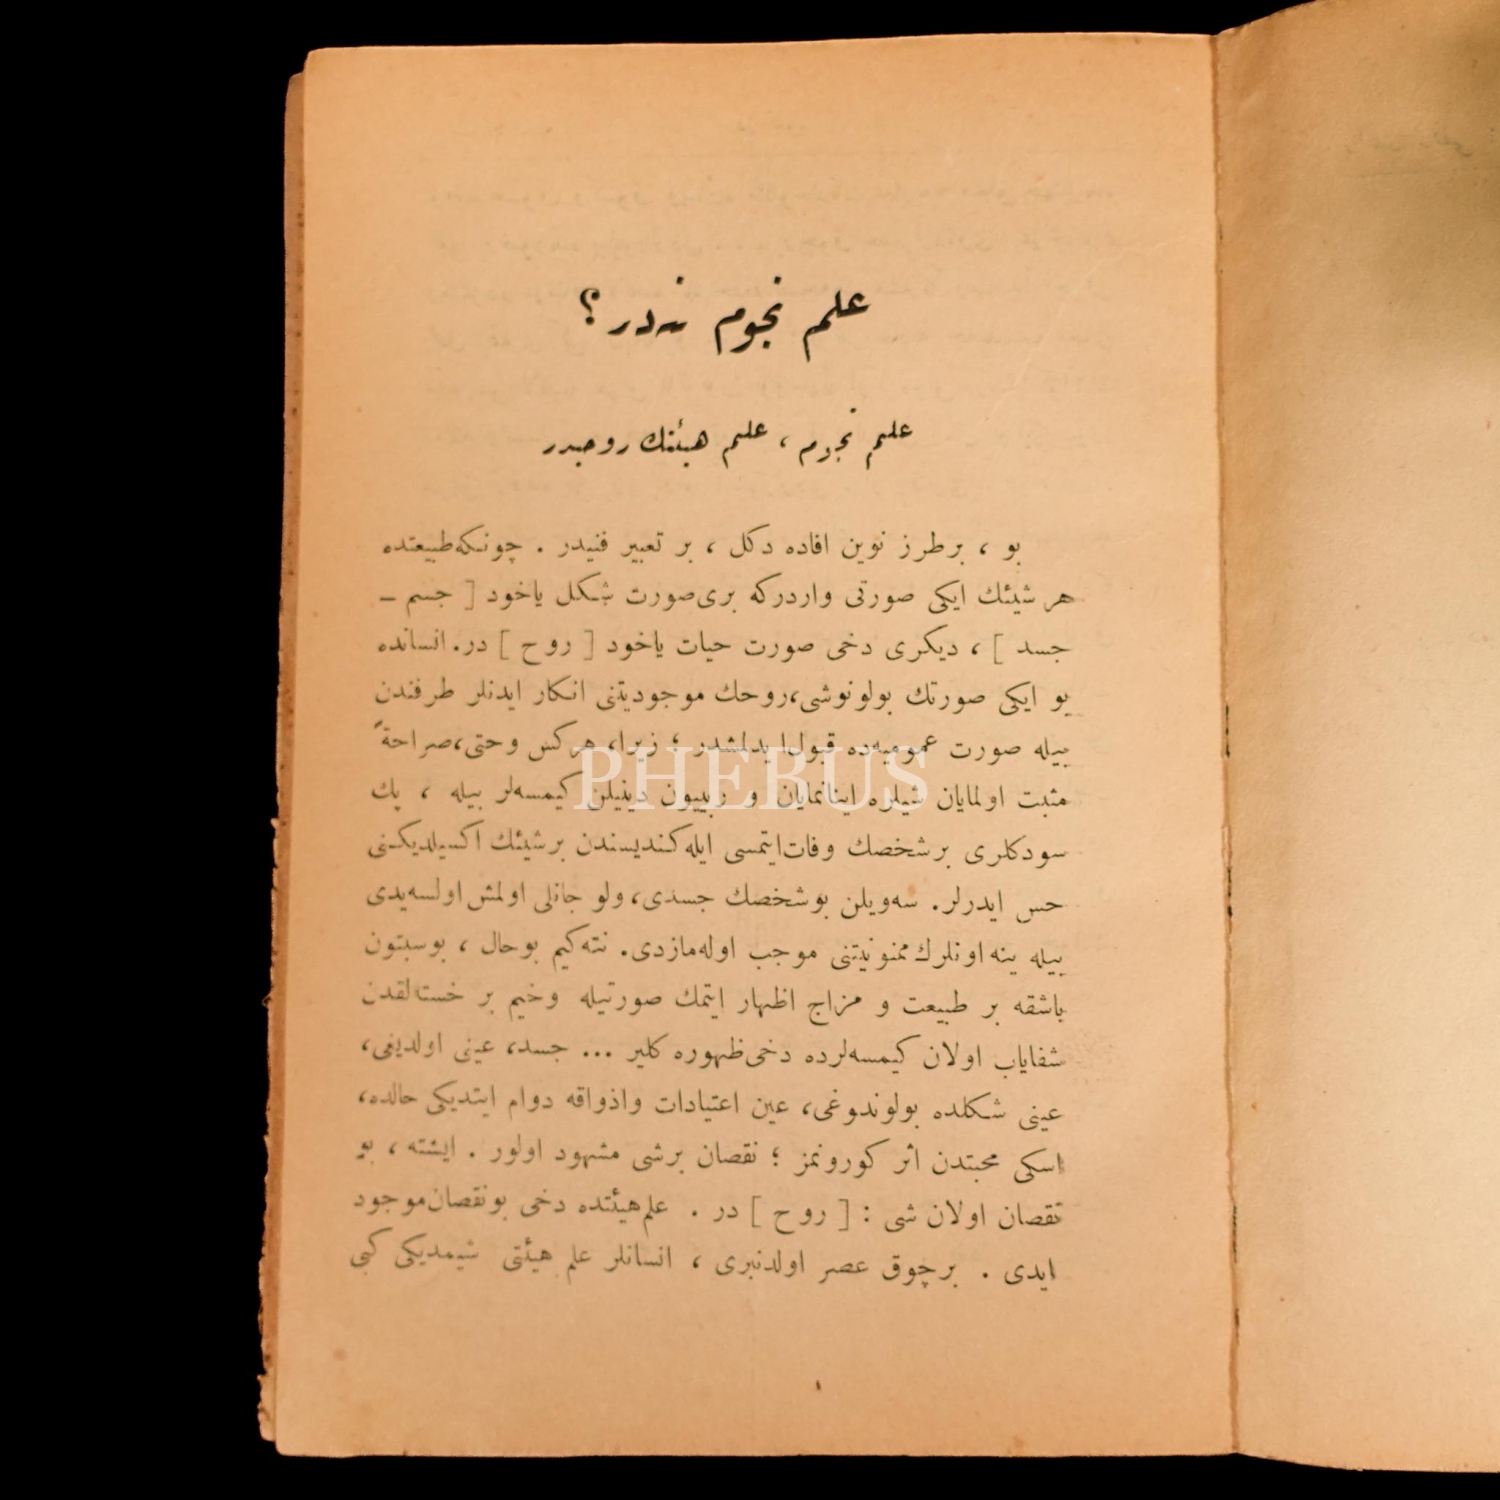 علم نجوم نه‌در ؟
علم نجوم ، علم هيئتك روحيدر
بو ، برطرز نوين افاده دكل ، بر تعبير فنيدر . چونكه طبيعتده
هر شيئك ايكى صورتى واردركه برى صورت شكل ياخود [ جسم –
جسد ] ، ديكرى دخى صورت حيات ياخود [ روح ] در. انسانده
بو ايكى صورتك بولونوشى، روحك موجوديتنى انكار ايدنلر طرفندن
بيله صورت عموميه‌ده قبول ايدلمشدر ؛ زيرا، هركس وحتى، صراحةً
مثبت اولمايان شيلره اينانمايان و ريبيون دينيلن كيمسه‌لر بيله ، پك
سودكلرى برشخصك وفات ايتمسى ايله كنديسندن برشيئك اكسيلديكنى
حس ايدرلر. سه‌ويلن بوشخصك جسدى، ولو جانلى اولمش اولسه‌يدى
بيله ينه اونلرك ممنونيتنى موجب اوله‌مازدى. نته‌كيم بوحال ، بوسبتون
باشقه بر طبيعت و مزاج اظهار ايتمك صورتيله وخيم بر خسته‌لقدن
شفاياب اولان كيمسه‌لرده دخى ظهوره كلير ... جسد، عينى اولديغى،
عينى شكلده بولوندوغى، عين اعتيادات واذواقه دوام ايتديكى حالده،
اسكى محبتدن اثر كورونمز ؛ نقصان برشى مشهود اولور . ايشته ، بو
نقصان اولان شى : [ روح ] در . علم هيئتده دخى بونقصان موجود
ايدى . برچوق عصر اولدنبرى ، انسانلر علم هيئتى شيمديكى كبى
١
PHEBUS